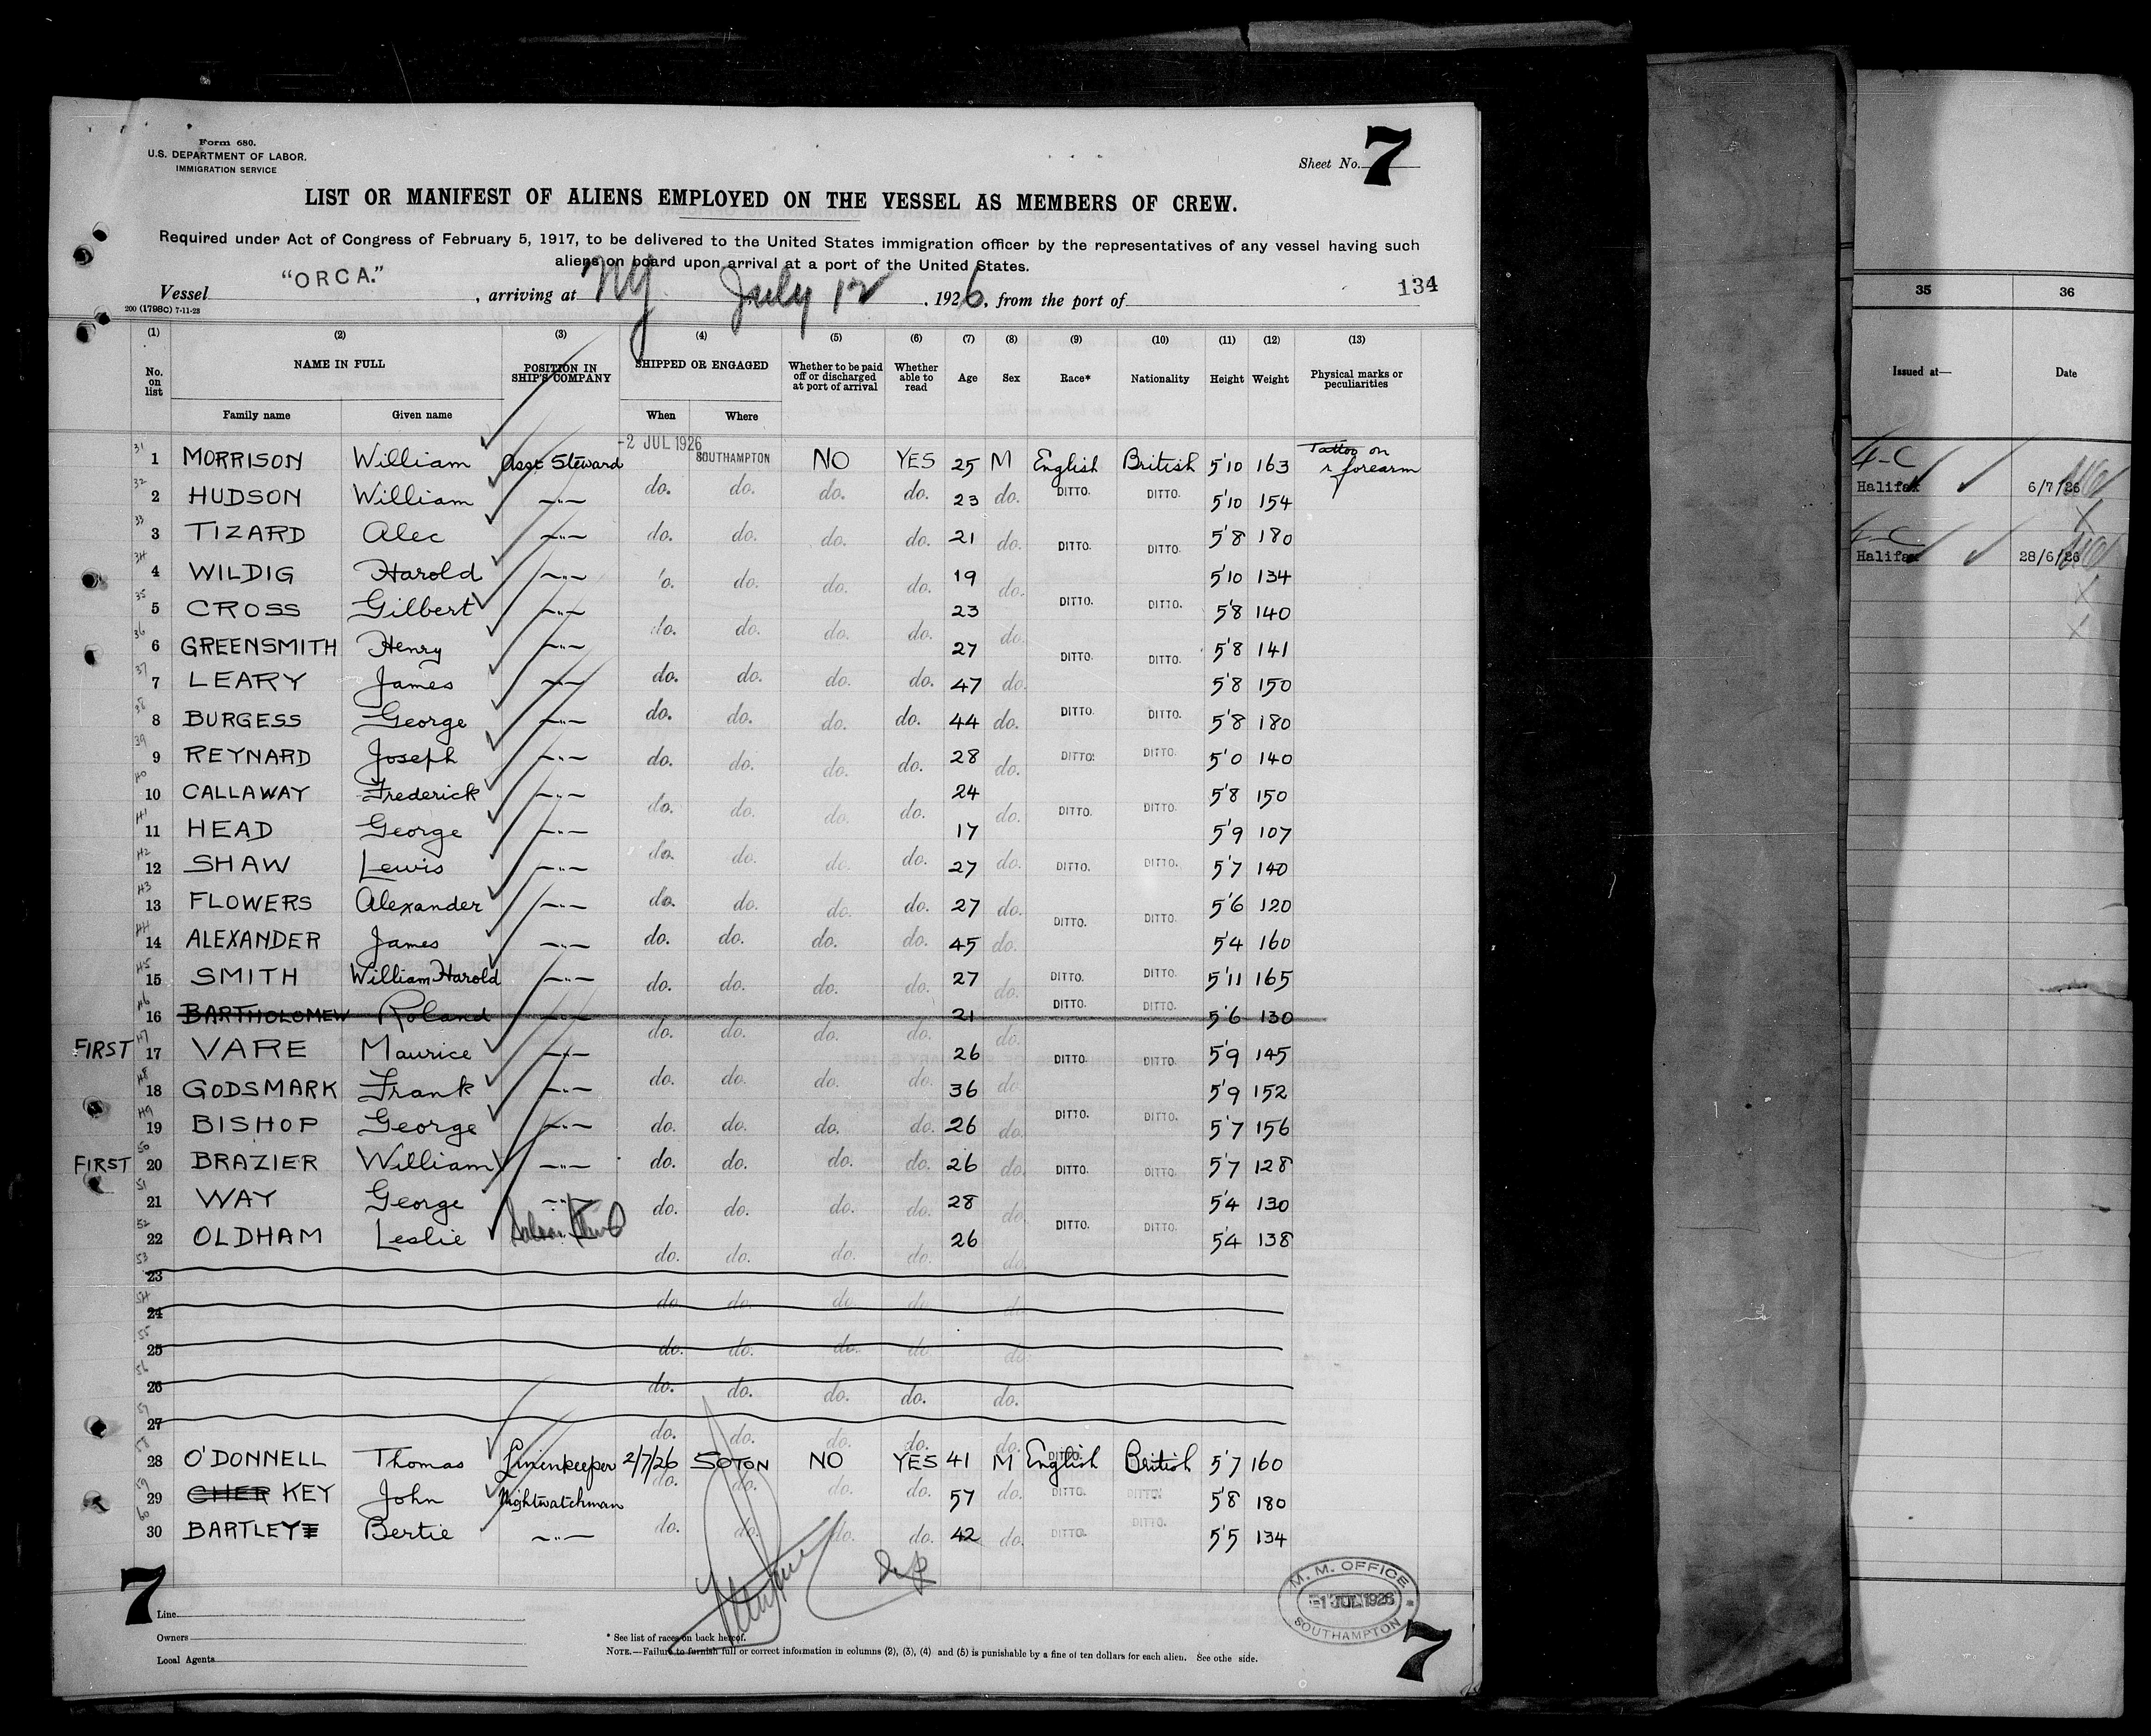 Form 680.
U.S. DEPARTMENT OF LABOR.
IMMIGRATION SERVICE
Sheet No. 7
LIST OR MANIFEST OF ALIENS EMPLOYED ON THE VESSEL AS MEMBERS OF CREW.
Required under Act of Congress of February 5, 1917, to be delivered to the United States immigration officer by the representatives of any vessel having such
aliens on board upon arrival at a port of the United States.
Vessel "ORCA." , arriving at NY July 12 , 1926, from the port of 134
200 (1798C) 7-11-23
(1) (2) (3) (4) (5) (6) (7) (8) (9) (10) (11) (12) (13)
No. on list NAME IN FULL POSITION IN SHIP'S COMPANY SHIPPED OR ENGAGED Whether to be paid off or discharged at port of arrival Whether able to read Age Sex Race* Nationality Height Weight Physical marks or peculiarities
Family name Given name When Where
31 1 MORRISON William Asst Steward -2 JUL 1926 SOUTHAMPTON NO YES 25 M English British 5'10 163 Tattoo on r forearm
32 2 HUDSON William —"— do. do. do. do. 23 do. DITTO. DITTO. 5'10 154
33 3 TIZARD Alec —"— do. do. do. do. 21 do. DITTO. DITTO. 5'8 180
34 4 WILDIG Harold —"— 'o. do. do. do. 19 do. DITTO. DITTO. 5'10 134
35 5 CROSS Gilbert —"— do. do. do. do. 23 do. 5'8 140
36 6 GREENSMITH Henry —"— 27 DITTO. DITTO. 5'8 141
37 7 LEARY James —"— do. do. do. do. 47 do. 5'8 150
38 8 BURGESS George —"— do. do. do. do. 44 do. DITTO. DITTO. 5'8 180
39 9 REYNARD Joseph —"— do. do. do. do. 28 do. DITTO. DITTO. 5'0 140
40 10 CALLAWAY Frederick —"— do. do. do. do. 24 do. DITTO. DITTO. 5'8 150
41 11 HEAD George —"— 17 5'9 107
42 12 SHAW Lewis —"— do. do. do. do. 27 do. DITTO. DITTO. 5'7 140
43 13 FLOWERS Alexander —"— do. do. do. do. 27 do. DITTO. DITTO. 5'6 120
44 14 ALEXANDER James —"— do. do. do. do. 45 do. 5'4 160
45 15 SMITH William Harold —"— do. do. do. do. 27 do. DITTO. DITTO. 5'11 165
46 16 BARTHOLOMEW Roland —"— do. do. do. do. 21 do. DITTO. DITTO. 5'6 130
FIRST 47 17 VARE Maurice —"— 26 DITTO. DITTO. 5'9 145
48 18 GODSMARK Frank —"— do. do. do. do. 36 do. 5'9 152
49 19 BISHOP George —"— do. do. do. do. 26 do. DITTO. DITTO. 5'7 156
FIRST 50 20 BRAZIER William —"— do. do. do. do. 26 do. DITTO. DITTO. 5'7 128
51 21 WAY George —"— do. do. do. do. 28 do. 5'4 130
52 22 OLDHAM Leslie do. do. do. do. 26 do. DITTO. DITTO. 5'4 138
53 23
54 24 do. do. do. do. do.
55 25 do. do. do. do. do.
56 26 do. do. do. do. do.
57 27 do. do. do. do. do.
58 28 O'DONNELL Thomas Linenkeeper 2/7/26 SOTON NO YES 41 M English British 5'7 160
59 29 CHER KEY John Nightwatchman do. do. do. do. 57 do. DITTO. DITTO. 5'8 180
60 30 BARTLEY Bertie —"— do. do. do. do. 42 do. DITTO. DITTO. 5'5 134
7
Line
Owners
Local Agents
* See list of races on back hereof.
NOTE.—Failure to furnish full or correct information in columns (2), (3), (4) and (5) is punishable by a fine of ten dollars for each alien. See othe side.
M. M. OFFICE
-1 JUL 1926
SOUTHAMPTON
7
35 36
Issued at— Date
4-C
Halifax 6/7/26
4-C
Halifax 28/6/26